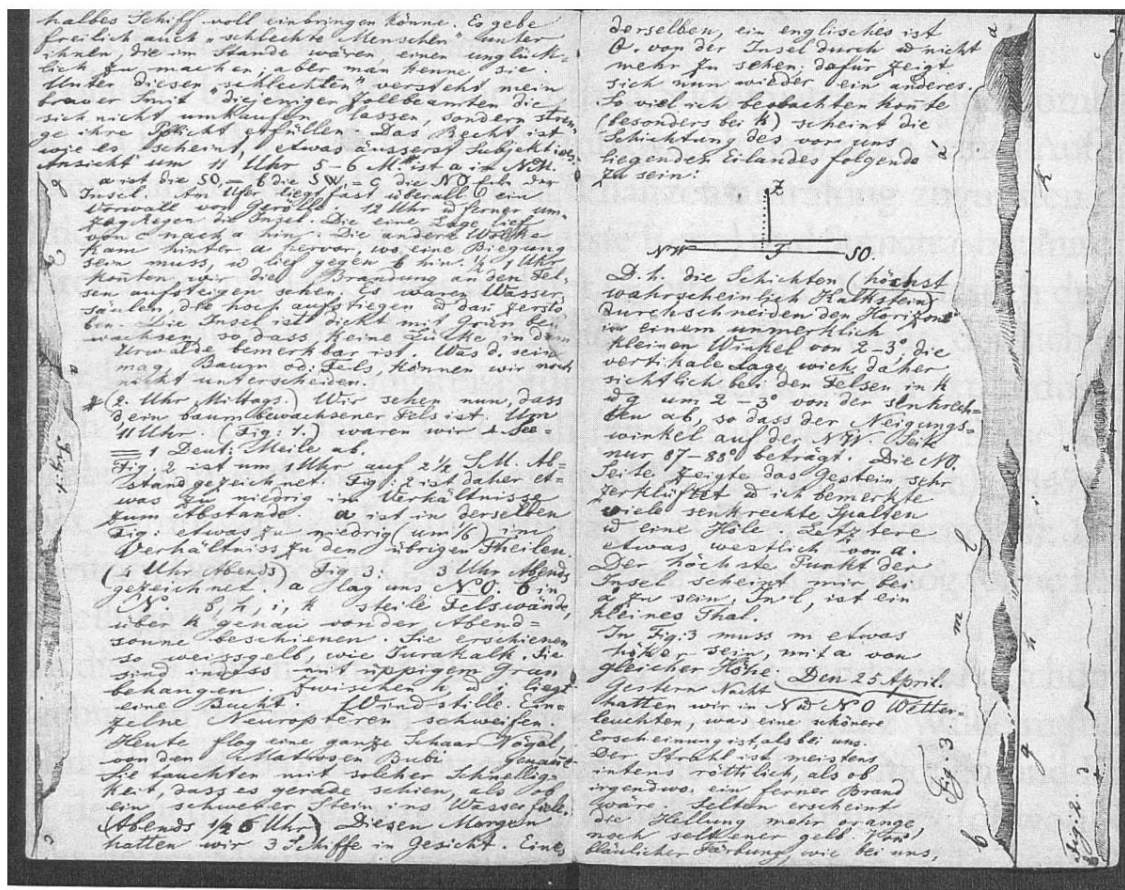 halbes Schiff voll einbringen könne. Es gebe
freilich auch "schlechte Menschen" unter
ihnen, die im Stande wären, einen unglück-
lich zu machen, aber man kenne sie.
Unter diesen "schlechten" versteht mein
braver Smit diejenigen Zollbeamten die
sich nicht umkaufen lassen, sondern stren-
ge ihre Pflicht erfüllen. Das Recht ist
wie es scheint, etwas äusserst Subjektives
Ansicht um 11 Uhr 5-6 M. ist a in
a ist die SO = b die SW = g die NO Ecke der
Insel. Am Ufer liegt fast überall ein
Vorwall von Geröll. 12 Uhr ferner um-
zog Regen die Insel. Die eine Lage lief
von c nach a hin. Die andere Wolke
kam hinter a hervor, wo eine Biegung
sein muss, & lief gegen b hin. ½ 1 Uhr
konten wir die Brandung an den Fel-
sen aufsteigen sehen. Es waren Wasser
säulen, die hoch aufstiegen & dan zersto-
ben. Die Insel ist dicht mit Grün be-
wachsen, so dass keine Lücke in dem
Urwalde bemerkbar ist. Was d. sein
mag, Baum od. Fels, können wir noch
nicht unterscheiden.
(2. Uhr Mittags.) Wir sehen nun, dass
d ein baumbewachsener Fels ist. Um
11 Uhr. (Fig: 1.) waren wir 4 See-
= 1 Deut: Meile ab.
Fig. 2 ist um 1 Uhr auf 2½ S.M. Ab-
stand gezeichnet. Fig: 2 ist daher et-
was zu niedrig im Verhältnisse
zum Abstande. a ist in derselben
Fig: etwas zu niedrig (um 1/6) im
Verhältniss zu den übrigen Theilen.
(4 Uhr Abends) Fig 3. 3 Uhr Abends
gezeichnet. a lag uns NO. b in
N. g, h, i, k steile Felswände,
über k genau von der Abend-
sonne beschienen. Sie erschienen
so weissgelb, wie Jurakalk. Sie
sind indess mit üppigem Grün
behangen. Zwischen h, & liegt
eine Bucht. Windstille. Ein-
zelne Neuropteren schweifen.
Heute flog eine ganze Schaar Vögel,
von den Matrosen Bubi genannt
Sie tauchten mit solcher Schnellig-
keit, dass es gerade schien, als ob
ein schwerer Stein ins Wasser fiele.
(Abends ½ 6 Uhr) Diesen Morgen
hatten wir 3 Schiffe in Gesicht. Eines
g
a
Fig: 1.
c
derselben, ein englisches ist
O. von der Insel durch & nicht
mehr zu sehen; dafür zeigt
sich nun wieder ein anderes.
So viel ich beobachten konte
(besonders bei k) scheint die
Schichtung des vor uns
liegenden Eilandes folgende
zu sein:
Z
NW F SO.
D. h. die Schichten (höchst
wahrscheinlich Kalkstein)
durchschneiden den Horizont
in einem unmerklich
kleinen Winkel von 2-3°, die
vertikale Lage wich, daher
sichtlich bei den Felsen in k
& g um 2-3° von der senkrech-
ten ab, so dass der Neigungs-
winkel auf der NW. Seite
nur 87-88° beträgt. Die NO.
Seite zeigte das Gestein sehr
zerklüftet & ich bemerkte
viele senkrechte Spalten
& eine Höle. Letztere
etwas westlich von a.
Der höchste Punkt der
Insel scheint mir bei
a zu sein. In l, ist ein
kleines Thal.
In Fig: 3 muss m etwas
höher sein, mit a von
gleicher Höhe. Den 25 April.
Gestern Nacht
hatten wir in N & NO Wetter-
leuchten, was eine schönere
Erscheinung ist, als bei uns.
Der Strahl ist meistens
intens röthlich, als ob
irgendwo ein ferner Brand
wäre. Selten erscheint
die Hellung mehr orange,
noch seltener gelb. Von
bläulicher Färbung, wie bei uns,
a
i
k
l
m
h
g
Fig 3
b
c
a
d
b
Fig: 2.